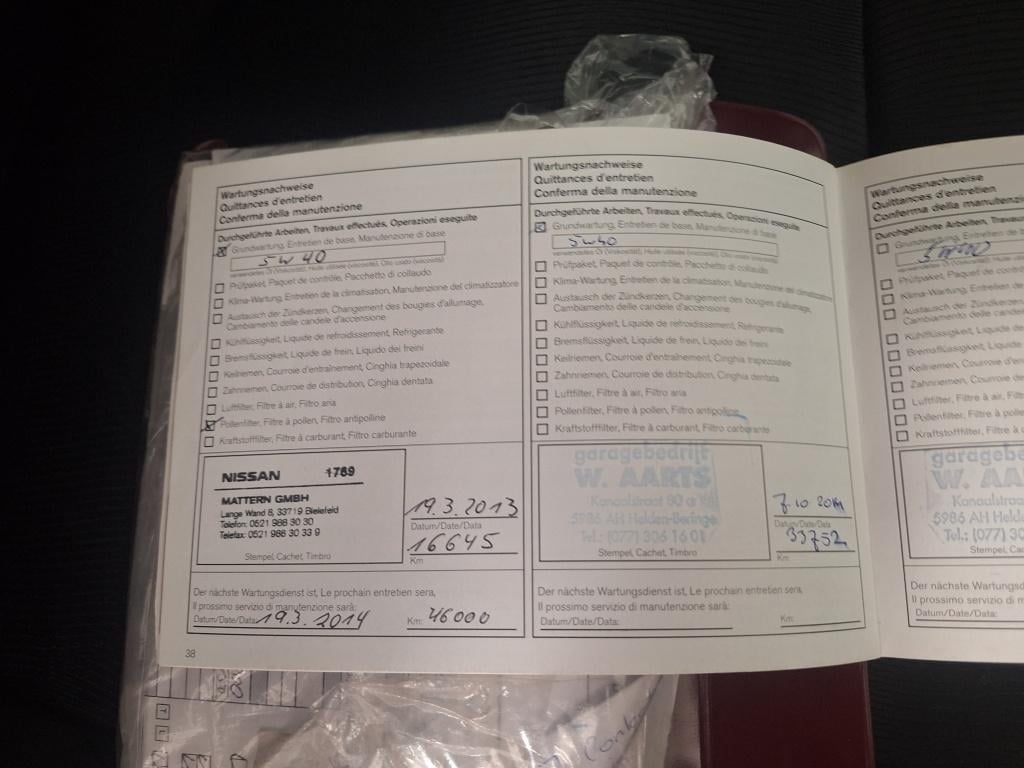 Wartungsnachweise
Quittances d'entretien
Conferma della manutenzione
Durchgeführte Arbeiten, Travaux effectués, Operazioni eseguite
Grundwartung, Entretien de base, Manutenzione di base
5W40
verwendetes Öl (Viskosität), Huile utilisée (viscosité), Olio usato (viscosità)
Prüfpaket, Paquet de contrôle, Pacchetto di collaudo
Klima-Wartung, Entretien de la climatisation, Manutenzione del climatizzatore
Austausch der Zündkerzen, Changement des bougies d'allumage,
Cambiamento delle candele d'accensione
Kühlflüssigkeit, Liquide de refroidissement, Refrigerante
Bremsflüssigkeit, Liquide de frein, Liquido dei freini
Keilriemen, Courroie d'entraînement, Cinghia trapezoidale
Zahnriemen, Courroie de distribution, Cinghia dentata
Luftfilter, Filtre à air, Filtro aria
Pollenfilter, Filtre à pollen, Filtro antipolline
Kraftstofffilter, Filtre à carburant, Filtro carburante
NISSAN 1789
MATTERN GMBH
Lange Wand 8, 33719 Bielefeld
Telefon: 0521 988 30 30
Telefax: 0521 988 30 33 9
Stempel, Cachet, Timbro
19.3.2013
Datum/Date/Data
16645
Km
Der nächste Wartungsdienst ist, Le prochain entretien sera,
Il prossimo servizio di manutenzione sarà:
Datum/Date/Data: 19.3.2014 Km: 46000
38
Wartungsnachweise
Quittances d'entretien
Conferma della manutenzione
Durchgeführte Arbeiten, Travaux effectués, Operazioni eseguite
Grundwartung, Entretien de base, Manutenzione di base
5W40
verwendetes Öl (Viskosität), Huile utilisée (viscosité), Olio usato (viscosità)
Prüfpaket, Paquet de contrôle, Pacchetto di collaudo
Klima-Wartung, Entretien de la climatisation, Manutenzione del climatizzatore
Austausch der Zündkerzen, Changement des bougies d'allumage,
Cambiamento delle candele d'accensione
Kühlflüssigkeit, Liquide de refroidissement, Refrigerante
Bremsflüssigkeit, Liquide de frein, Liquido dei freini
Keilriemen, Courroie d'entraînement, Cinghia trapezoidale
Zahnriemen, Courroie de distribution, Cinghia dentata
Luftfilter, Filtre à air, Filtro aria
Pollenfilter, Filtre à pollen, Filtro antipolline
Kraftstofffilter, Filtre à carburant, Filtro carburante
garagebedrijf
W. AARTS
Kanaalstraat 80
5986 AH Helden-Beringe
Tel.: (077) 306 16 01
Stempel, Cachet, Timbro
7.10
Datum/Date/Data
33752
Km
Der nächste Wartungsdienst ist, Le prochain entretien sera,
Il prossimo servizio di manutenzione sarà:
Datum/Date/Data: Km:
Wartungsnachweise
Quittances d'entretien
Conferma della manutenzione
Durchgeführte Arbeiten, Travaux
Grundwartung, Entretien de
5W40
Prüfpaket, Paquet de con
Klima-Wartung, Entretien
Austausch der Zündkerzen
Cambiamento delle cand
Kühlflüssigkeit, Liquide
Bremsflüssigkeit, Liquid
Keilriemen, Courroie d
Zahnriemen, Courroie
Luftfilter, Filtre à air, F
Pollenfilter, Filtre à p
Kraftstofffilter, Filtre
garagebe
W. AA
Kanaalst
5986 AH H
Tel.: (077) 30
Stempel, Cac
Der nächste Wartungs
Il prossimo servizio di m
Datum/Date/Data: